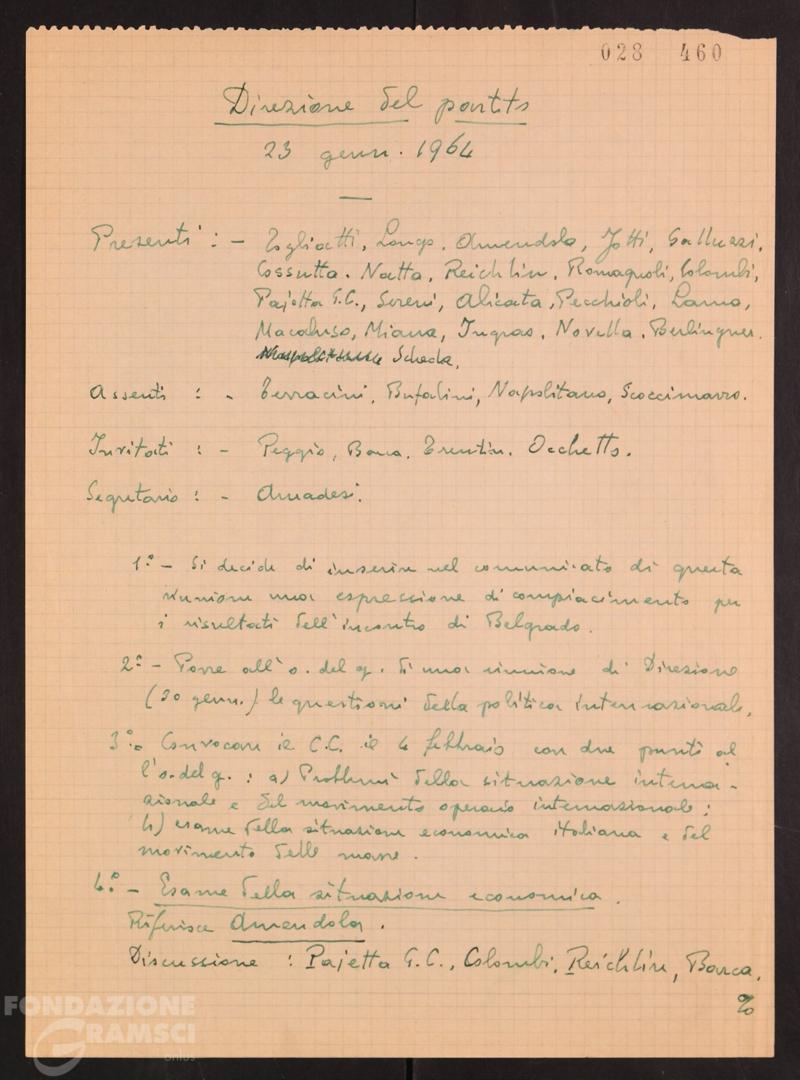 028 460
Direzione del partito
23 genn. 1964
Presenti : - Togliatti, Longo, Amendola, Jotti, Galluzzi,
Cossutta. Natta, Reichlin, Romagnoli, Colombi,
Pajetta G.C., Sereni, Alicata, Pecchioli, Lama,
Macaluso, Miana, Ingrao, Novella. Berlinguer.
Scheda,
Assenti : - Terracini, Bufalini, Napolitano, Scoccimarro.
Invitati : - Peggio, Barca, Trentin. Occhetto.
Segretario : - Amadesi.
1° - Si decide di inserire nel comunicato di questa
riunione una espressione di compiacimento per
i risultati dell'incontro di Belgrado.
2° - Porre all'o. del g. di una riunione di Direzione
(30 genn.) le questioni della politica internazionale.
3°. Convocare il C.C. il 4 febbraio con due punti al
l'o. del g. : a) Problemi della situazione interna-
zionale e del movimento operaio internazionale;
b) esame della situazione economica italiana e del
movimento delle masse.
4° - Esame della situazione economica.
Riferisce Amendola.
Discussione : Pajetta G.C., Colombi, Reichlin, Barca,
%
FONDAZIONE
GRAMSCI
onlus